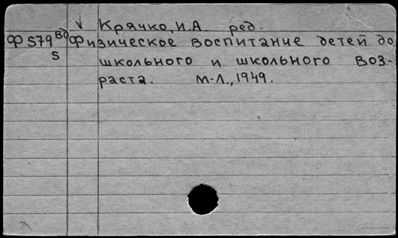 Крячко, И.А. ред.
Ф579 Вд Физическое воспитание детей до
5 школьного и школьного воз-
раста. М-Л., 1949.